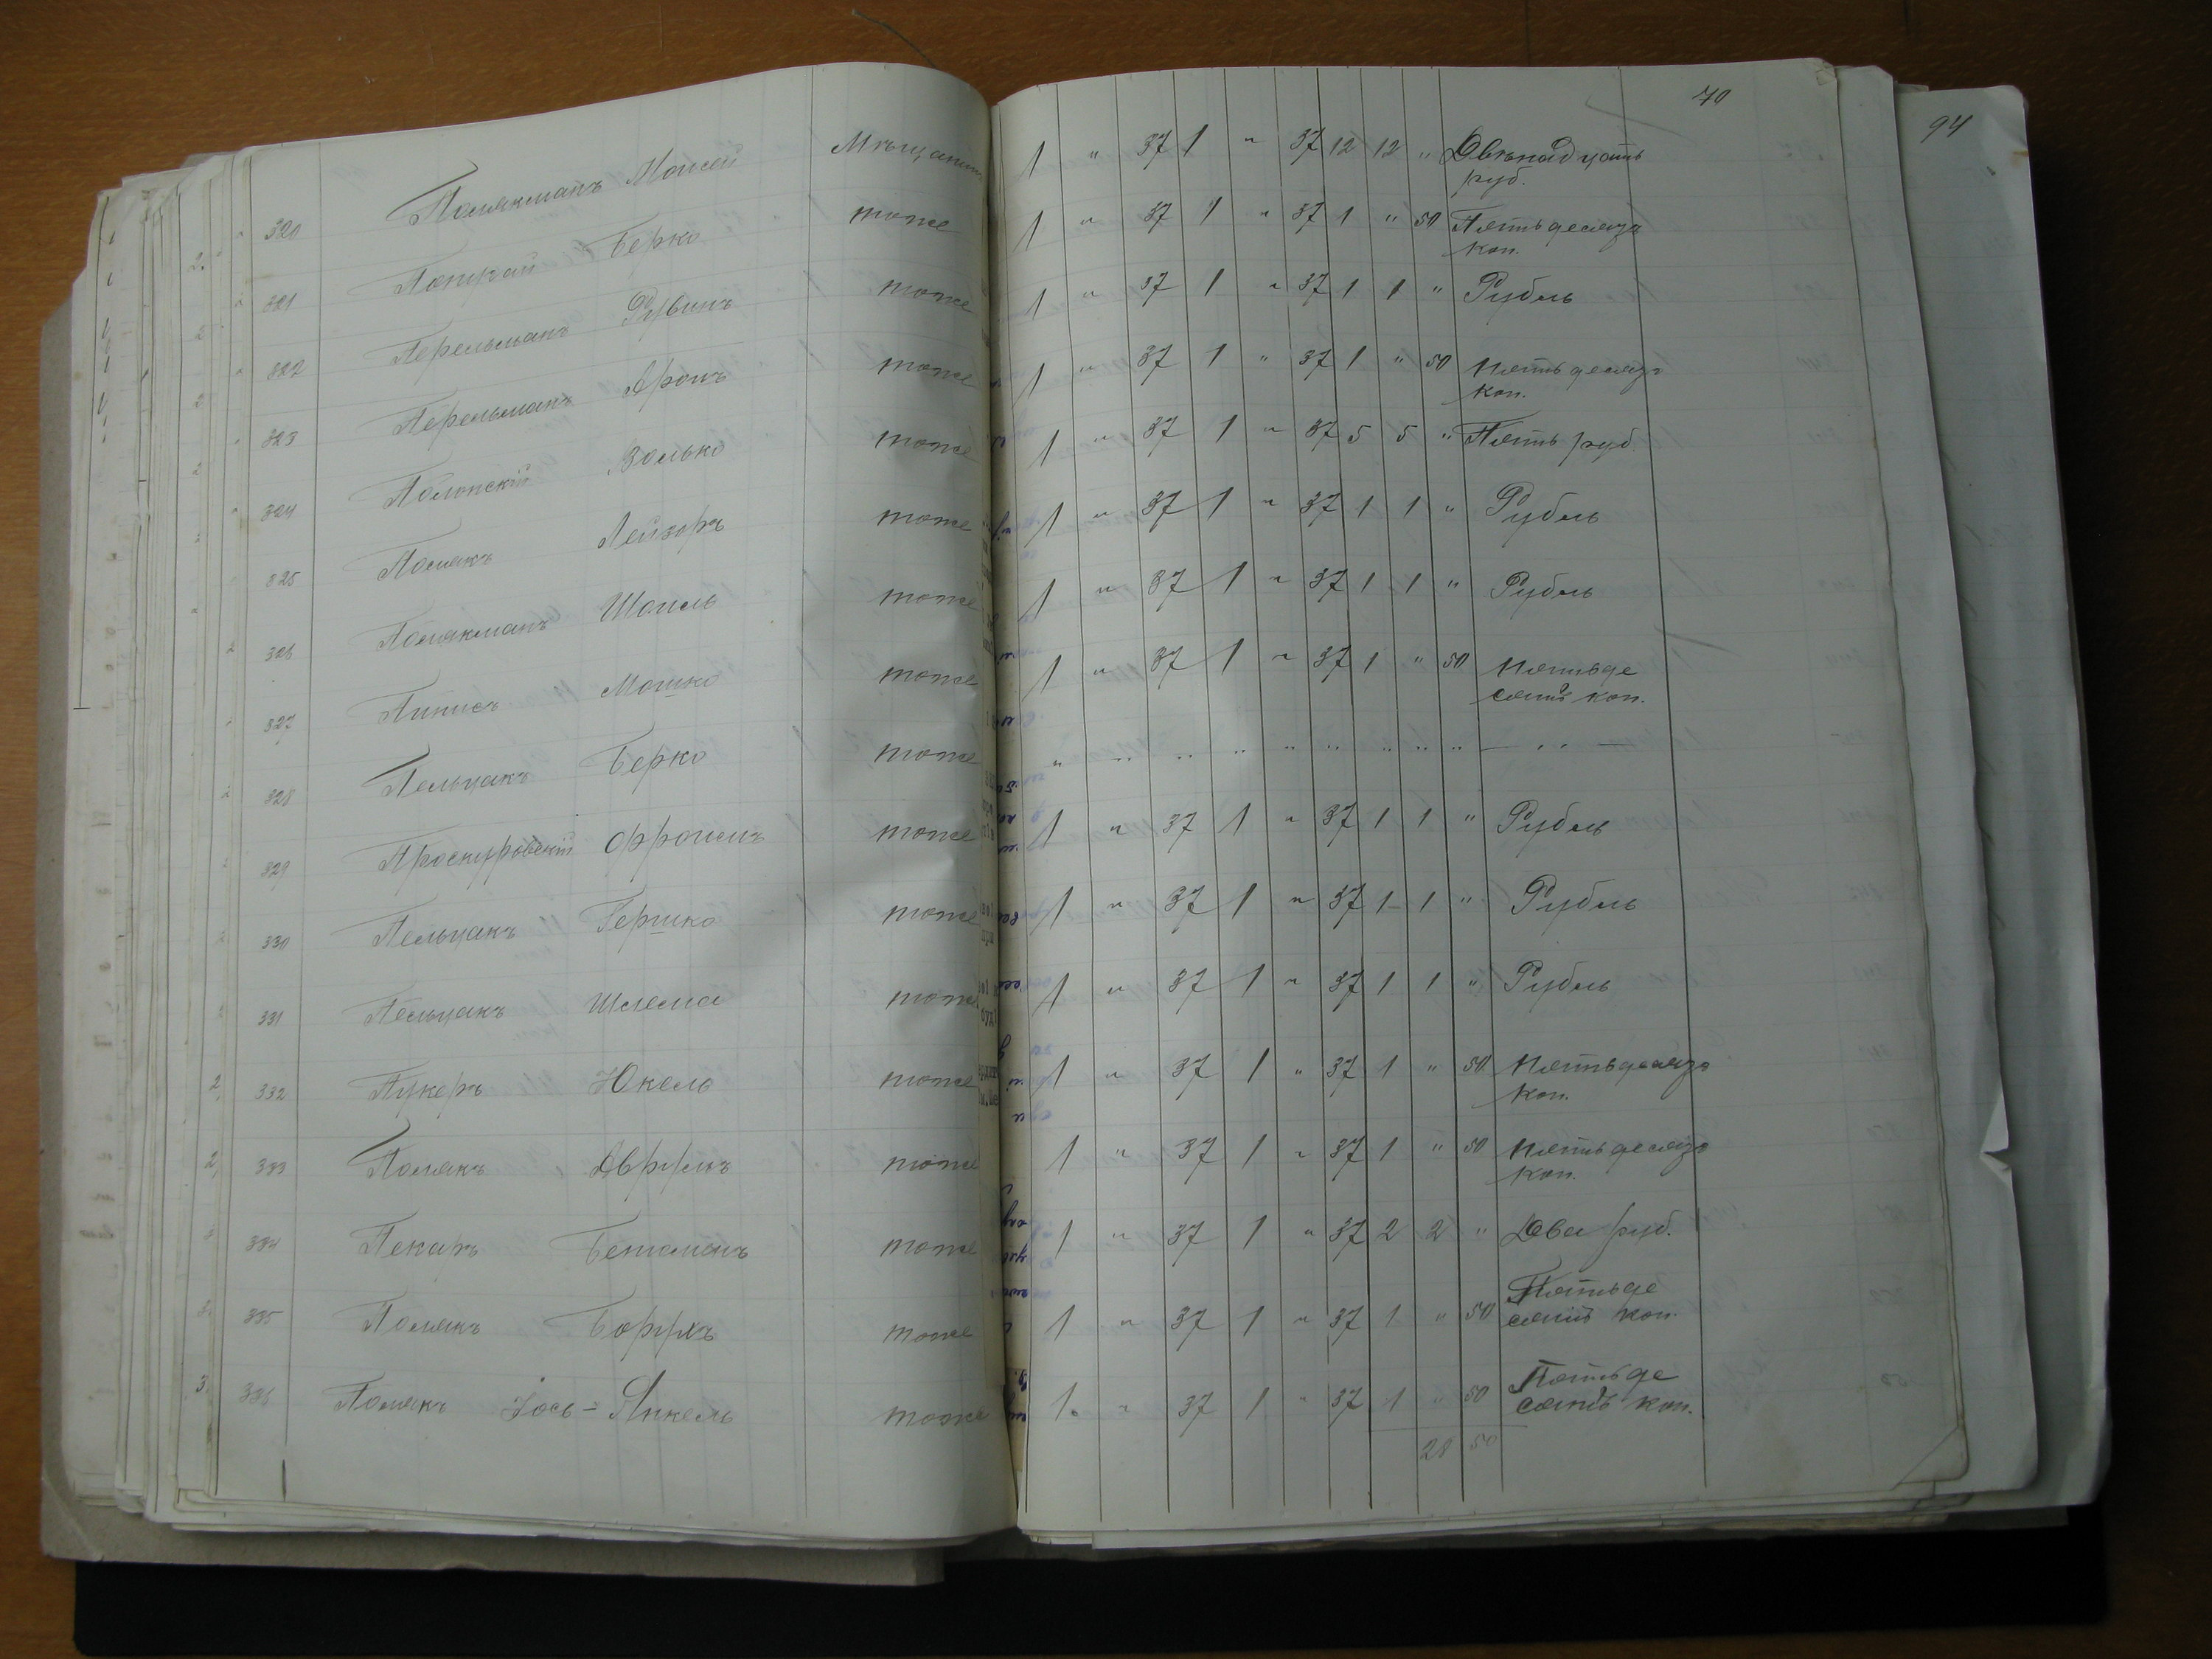 70
94
320 Полякманъ Моисей Мѣщанинъ 1 " 37 1 " 37 12 12 " Двѣнадцать
руб.
321 Берко тоже 1 " 37 1 " 37 1 " 50 Пятьдесятъ
коп.
322 Перельманъ Рувинъ тоже 1 " 37 1 " 37 1 1 " Рубль
323 Перельманъ Аронъ тоже 1 " 37 1 " 37 1 " 50 Пятьдесятъ
коп.
324 Полонскій Волько тоже 1 " 37 1 " 37 5 5 " Пять руб.
325 Полякъ Лейзоръ тоже 1 " 37 1 " 37 1 1 " Рубль
326 Полякманъ Шоиль тоже 1 " 37 1 " 37 1 1 " Рубль
327 Пинисъ Мошко тоже 1 " 37 1 " 37 1 " 50 Пятьде
сятъ коп.
328 Пельцакъ Берко тоже " " " " " " " " " — " —
329 Проскуровскій Фроимъ тоже 1 " 37 1 " 37 1 1 " Рубль
330 Пельцакъ Гершко тоже 1 " 37 1 " 37 1 1 " Рубль
331 Пельцакъ Шлема тоже 1 " 37 1 " 37 1 1 " Рубль
2 332 Пукеръ Юкель тоже 1 " 37 1 " 37 1 " 50 Пятьдесятъ
коп.
2 333 Полякъ Аврумъ тоже 1 " 37 1 " 37 1 " 50 Пятьдесятъ
коп.
334 Пекаръ Бенюминъ тоже 1 " 37 1 " 37 2 2 " Два руб.
335 Полякъ Борухъ тоже 1 " 37 1 " 37 1 " 50 Пятьде
сятъ коп.
3 336 Полякъ Іось-Янкель тоже 1 " 37 1 " 37 1 " 50 Пятьде
сятъ коп.
28 50